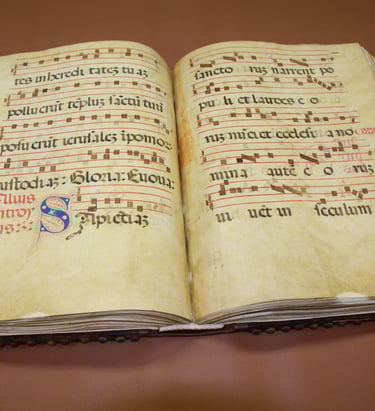 tes in heredi tatez tu az
polluerūt tēpluz sāctū tuū
posuerūt ierusalez ī pomo
ustodiaz: Gloria: Euoua:
Sapiētiaz
sancto ruz narrent po
pu li et laudes e o
ruz nūciet ecclesia no
mina autē e o ruz
in uēt in seculum